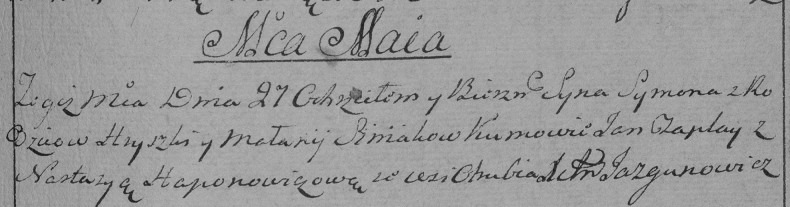 Mca Maia
Tegiż Mca Dnia 27 Ochrzciłem y Bierzm Syna Symona z Ro
Dzicow Hryszki y Matanij Kumowie Jan Czaplay z
Nastazyą Haponowiczową ze wsi Jazgunowicz